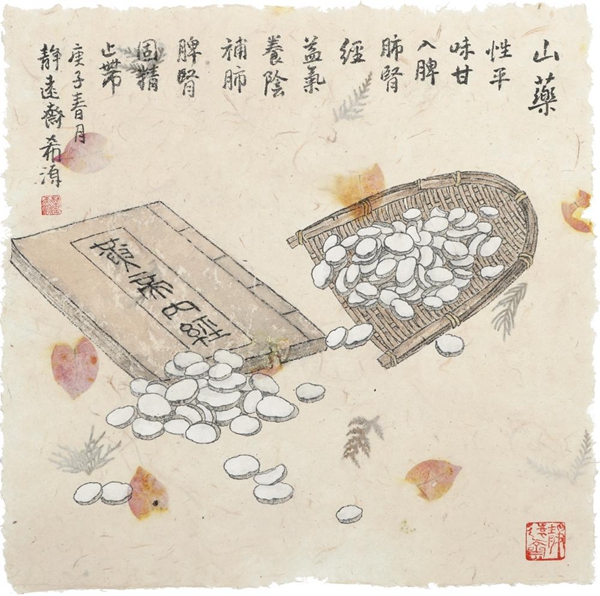 山藥
性平
味甘
入脾
肺腎
經
益氣
養陰
補肺
脾腎
固精
止帶
庚子春月
靜遠齋希